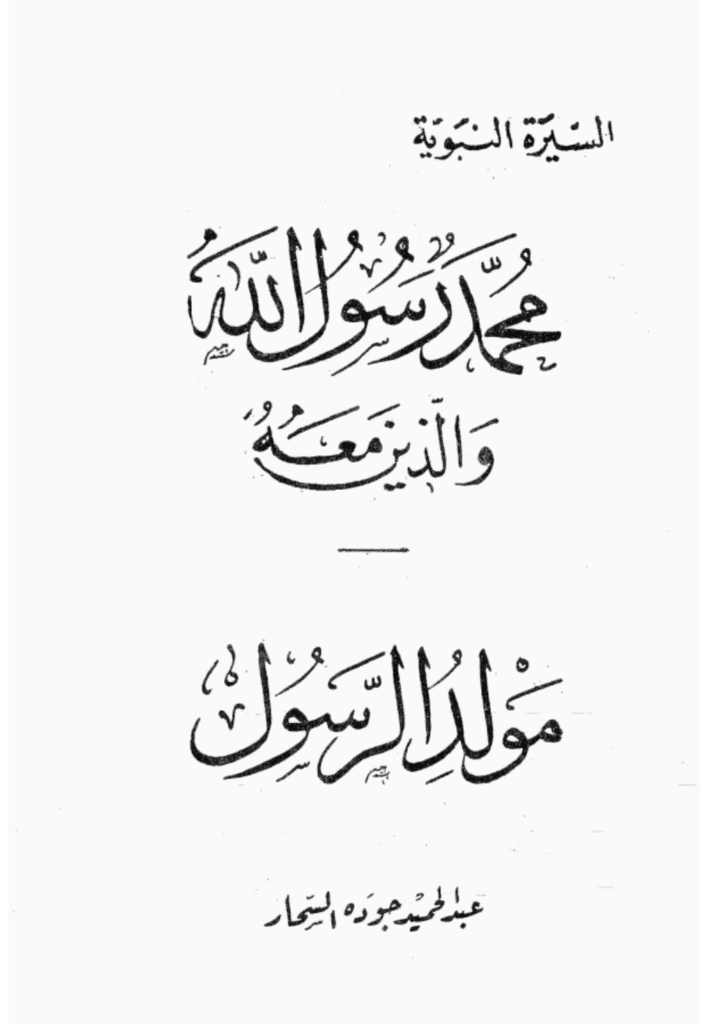 السّيَرة النبَويّة
محُمّد رَسُول اللهُ
وَالذّين مَعَهُ
مَوْلدُ الرّسُولْ
عبد الحميد جوَده السّحار